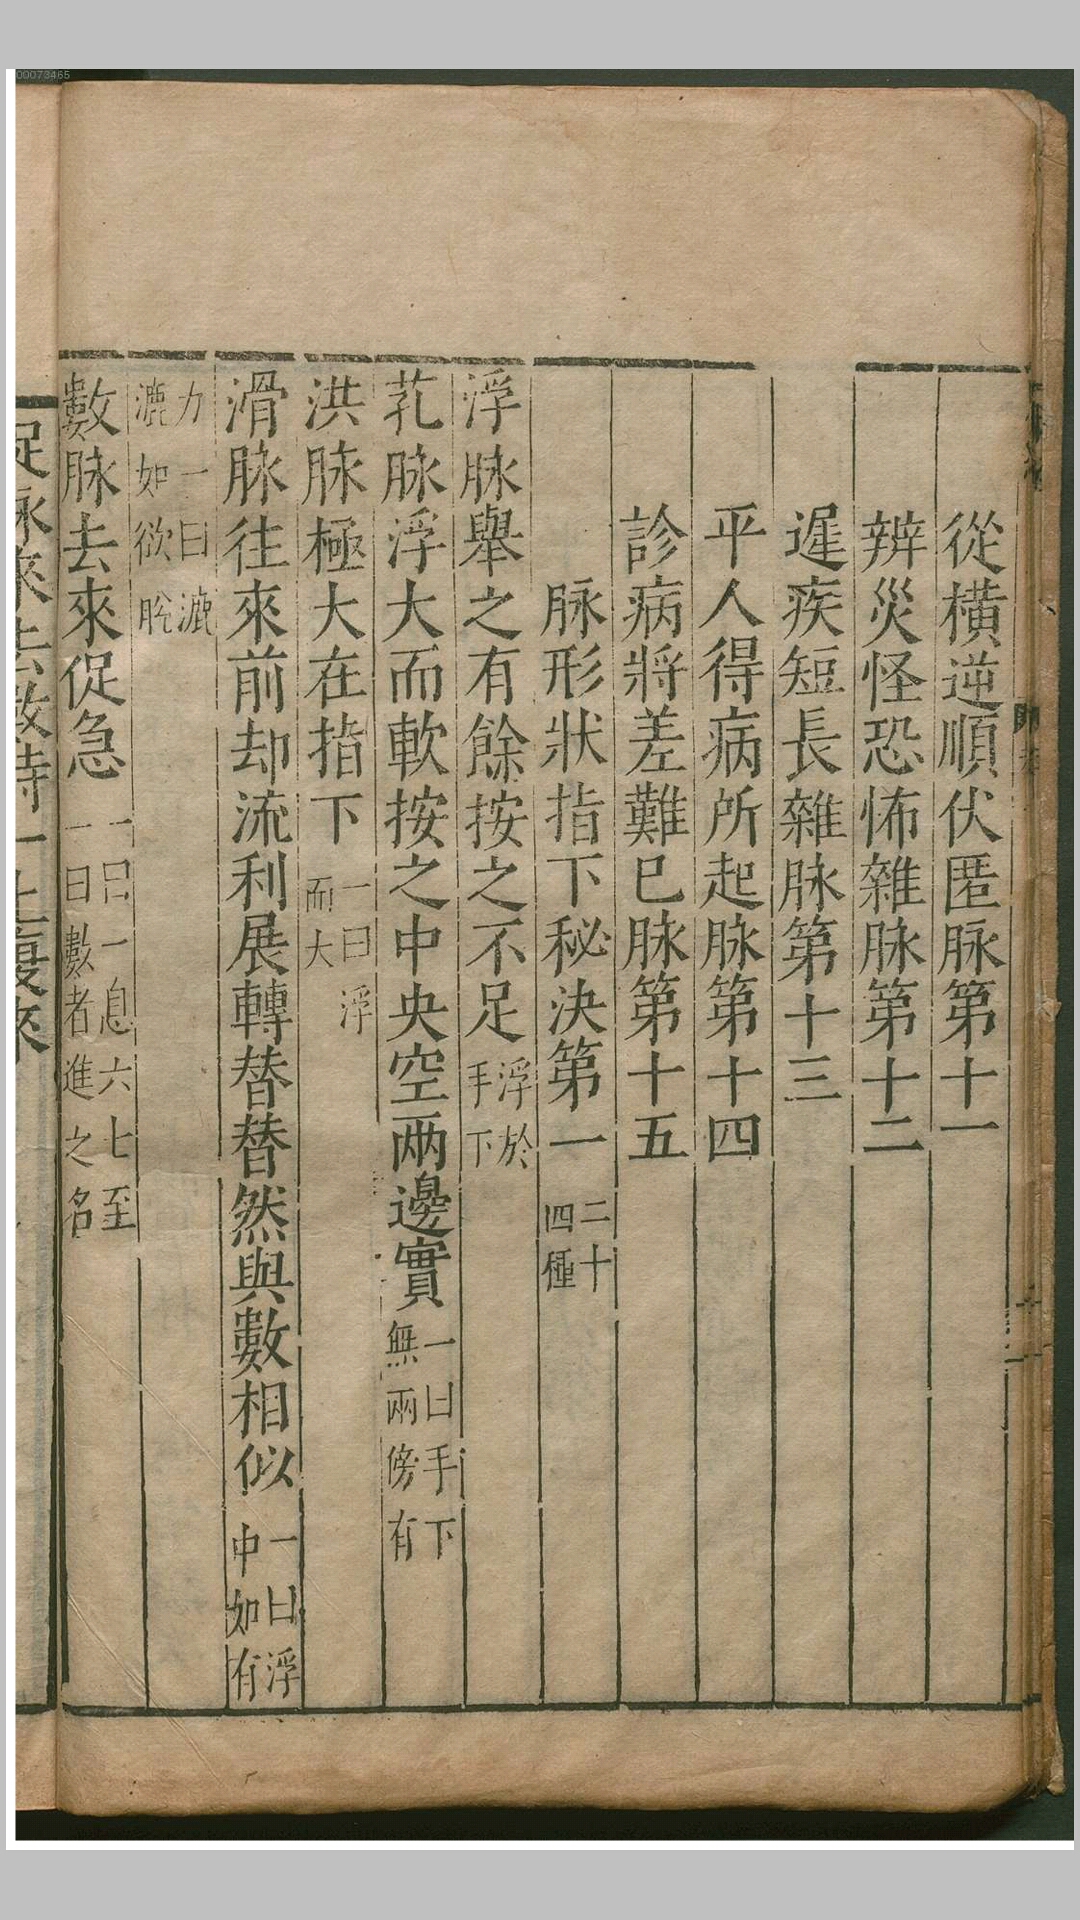 00073465
從橫逆順伏匿脉第十一
辨災怪恐怖雜脉第十二
遲疾短長雜脉第十三
平人得病所起脉第十四
診病將差難已脉第十五
脉形狀指下秘決第一 二十四種
浮脉舉之有餘按之不足 浮於手下
芤脉浮大而軟按之中央空兩邊實 一曰手下無兩傍有
洪脉極大在指下 一曰浮而大
滑脉往來前却流利展轉替替然與數相似 一曰浮中如有
力一曰漉漉如欲脫
數脉去來促急 一曰一息六七至一曰數者進之名
促脉來去數時一止復來